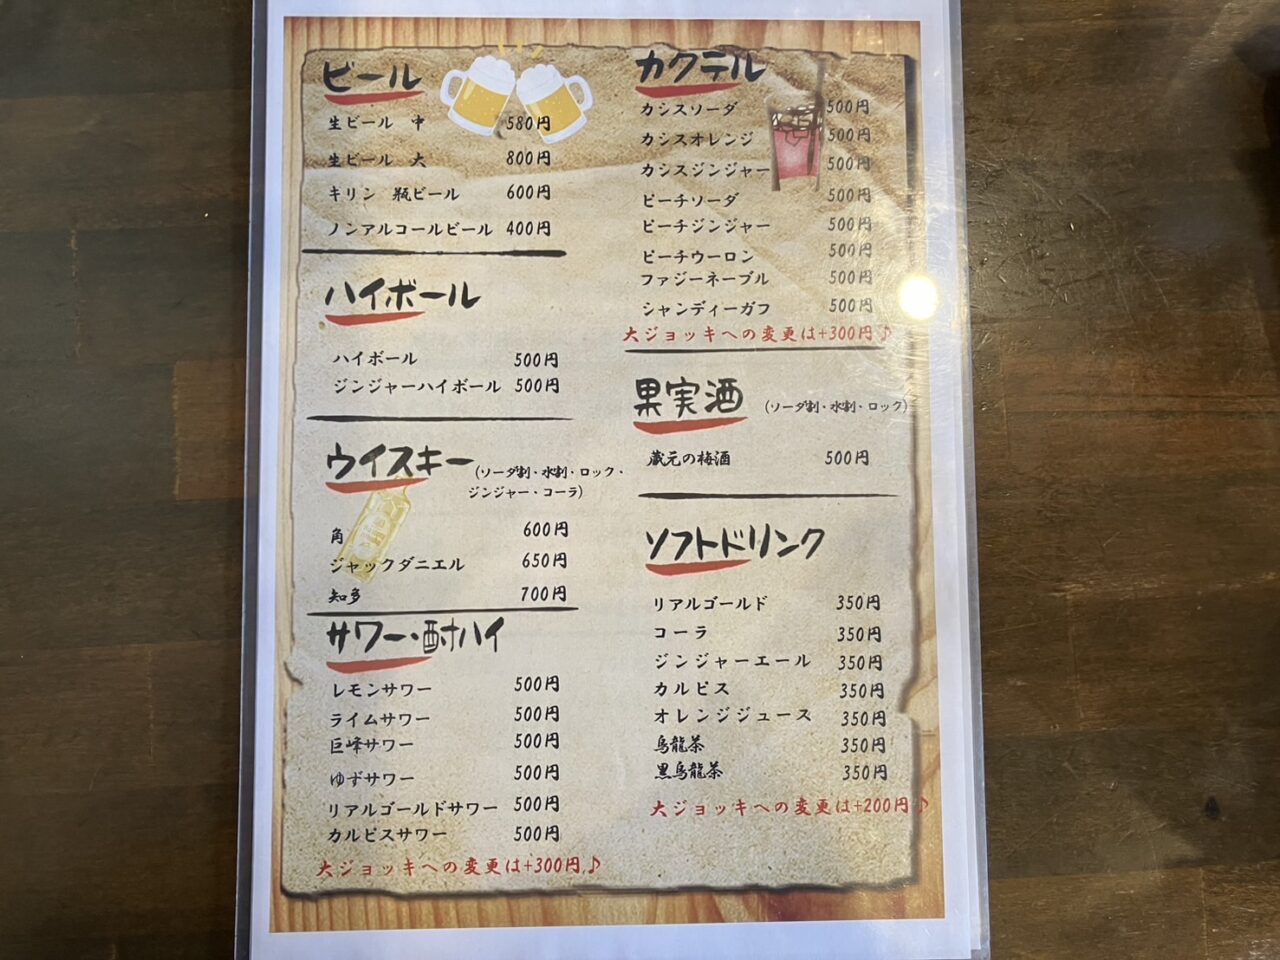 ビール
生ビール 中 580円
生ビール 大 800円
キリン 瓶ビール 600円
ノンアルコールビール 400円
ハイボール
ハイボール 500円
ジンジャーハイボール 500円
ウイスキー (ソーダ割・水割・ロック・
ジンジャー・コーラ)
角 600円
ジャックダニエル 650円
知多 700円
サワー・酎ハイ
レモンサワー 500円
ライムサワー 500円
巨峰サワー 500円
ゆずサワー 500円
リアルゴールドサワー 500円
カルピスサワー 500円
大ジョッキへの変更は+300円♪
カクテル
カシスソーダ 500円
カシスオレンジ 500円
カシスジンジャー 500円
ピーチソーダ 500円
ピーチジンジャー 500円
ピーチウーロン 500円
ファジーネーブル 500円
シャンディーガフ 500円
大ジョッキへの変更は+300円♪
果実酒 (ソーダ割・水割・ロック)
蔵元の梅酒 500円
ソフトドリンク
リアルゴールド 350円
コーラ 350円
ジンジャーエール 350円
カルピス 350円
オレンジジュース 350円
烏龍茶 350円
黒烏龍茶 350円
大ジョッキへの変更は+200円♪